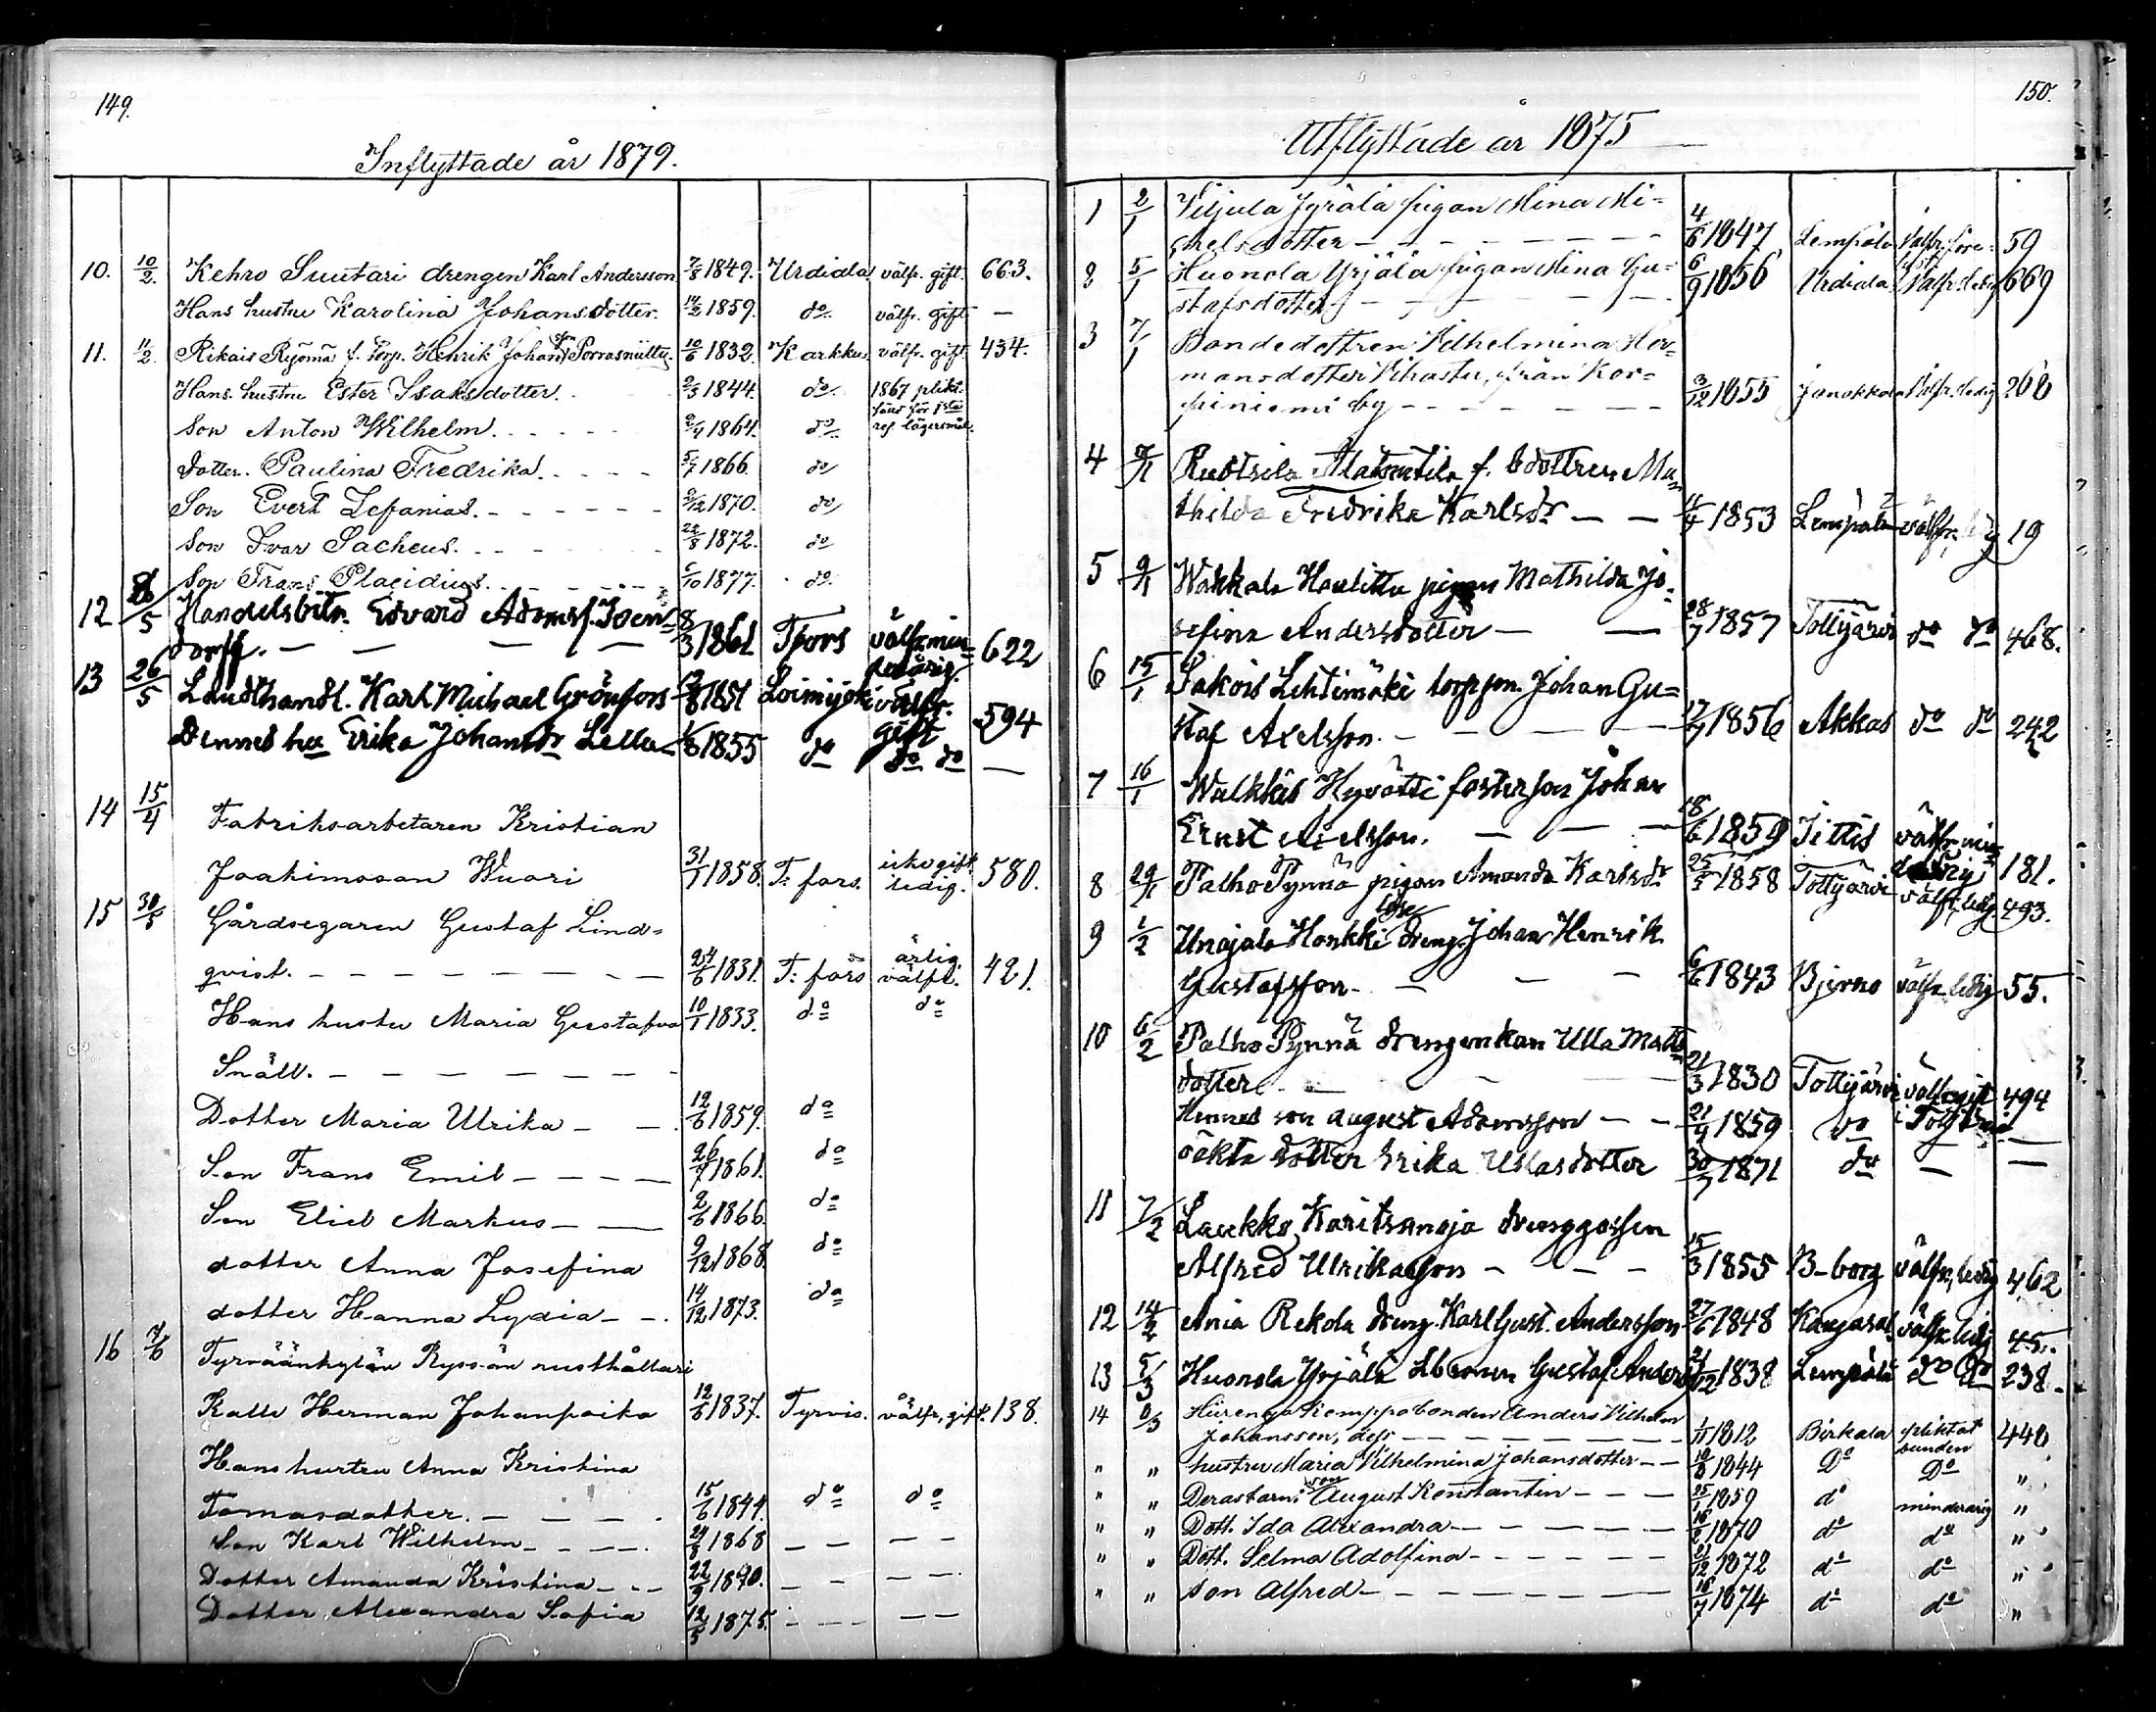 149.
Inflyttade år 1879.
10. 10/2. Kehro Suutari drengen Karl Andersson 7/8 1849. Urdiala välfr. gift. 663.
Hans hustru Karolina Johansdotter. 14/2 1859. do välfr. gift. —
11. 11/2. Rikais Rejomä f. Torp. Henrik Johans son Porrasniitty. 10/6 1832. Karkku välfr. gift. 434.
Hans hustru Ester Isaksdotter. 2/3 1844. do 1867 plikt.
Son Anton Wilhelm. 2/4 1864. do
dotter. Paulina Fredrika. 5/7 1866. do
Son Evert Zefanias. 2/12 1870. do
Son Ivar Sacheus. 22/8 1872. do
Son Frans Placidius. 5/10 1877. do
12 8/5 Handelsbitr. Edvard Adamsf. Iven=
dorff. — — 8/3 1861 Tfors välfr. min=derårig. 622
13 26/5 Landthandl. Karl Michael Grönfors 1851 Loimijoki välfr. gift 594
Dennes hu Erika Johansdr Lella 1855 do do do —
14 15/4 Fabriksarbetaren Kristian
Joakimsson Wuori 31/1 1858. T: fors. icke gift ledig. 580.
15 30/5 Gårdsegaren Gustaf Lind=
qvist. — — — 24/6 1831. T: fors ärlig. välfr. 421.
Hans hustru Maria Gustafva 10/1 1833. do do
Snäll. — — —
Dotter Maria Ulrika — — 12/6 1859. do
Son Frans Emil — — — 26/7 1861. do
Son Elieb Markus — — 2/6 1866. do
dotter Anna Josefina 9/12 1868. do
dotter Hanna Lydia — — 14/12 1873. do
16 7/6 Tyrväänkylän Ryssän rusthållari
Kalle Herman Johanpoika 12/6 1837. Tyrvis. välfr. gift. 138.
Hans hustru Anna Kristina
Tomasdotter. — — — 15/6 1844. do do
Son Karl Wilhelm — — — 24/8 1868 — — — —
Dotter Amanda Kristina — — 22/9 1870. — — — —
Dotter Alexandra Sofia 12/5 1875. — — — —
150.
Utflyttade år 1875
1 2/1 Viljula Jyrälä pigan Mina Mi=
chelsdotter — — — 4/6 1847 Lempäla Välfr. 59
2 5/1 Huonola Yrjälä pigan Mina Gu=
stafsdotter — — — 6/9 1856 Urdiala Välfr. ledig 669
3 7/1 Bondedottren Vilhelmina Her=
mansdotter Vihastu, från Kor=
piniemi by — — — 3/12 1855 Janakkala Välfr. ledig 268
4 7/1 f. bdottren Ma=
thilda Fredrika Karlsdr — — 11/4 1853 Lempäla välfr. 19
5 9/1 Wakkala Haulittu pigan Mathilda Jo=
sefina Andersdotter — — 28/7 1857 Tottijärvi do do 468.
6 15/1 Pakois Lehtimäki torpson. Johan Gu=
staf Axelsson. — — — 17/7 1856 Akkas do do 242
7 16/1 Walkkis Hyvätti fosterson Johan
Ernst Axelsson. — — — 18/6 1859 Tittis välfr. min=derårig 181.
8 29/1 Palho Pynnä pigan Amanda Karlsdr 25/5 1858 Tottijärvi välfr. ledig. 493.
9 1/2 Unajala Honkki dreng. Johan Henrik
Gustafsson. — — — 6/6 1843 Bjerno välfr. ledig 55.
10 6/2 Palho Pynnä drengenkan Ulla Matts=
dotter — — — 21/3 1830 Tottijärvi välfr. gift 494
Hennes son August Adamsson — — 21/4 1859 do —
oäkta dotter Erika Ullasdotter 30/7 1871 do — —
11 7/2 Laukko Karitsanoja drenggossen
Alfred Ulrikasson — — — 15/3 1855 B-borg välfr. ledig 462
12 14/2 Ania Rekola dreng. Karl Gust. Andersson 27/6 1848 Kangasal välfr. ledig 45.
13 5/3 Huonola Yrjälä Gustaf Anders 21/12 1838 Lempäla do do 238.
14 8/3 Hiirenoja Kemppo bonden Anders Vilhelm
Johansson, dess — — — 1/11 1812 Birkala pliktat bunden 440
" " hustru Maria Vilhelmina Johansdotter — — 10/8 1844 Do Do "
" " Deras barn: son August Konstantin — — — 25/1 1859 do minderårig "
" " Dott. Ida Alexandra — — — 16/2 1870 do do "
" " Dott. Selma Adolfina — — — 21/12 1872 do do "
" " son Alfred — — — 16/7 1874 do do "